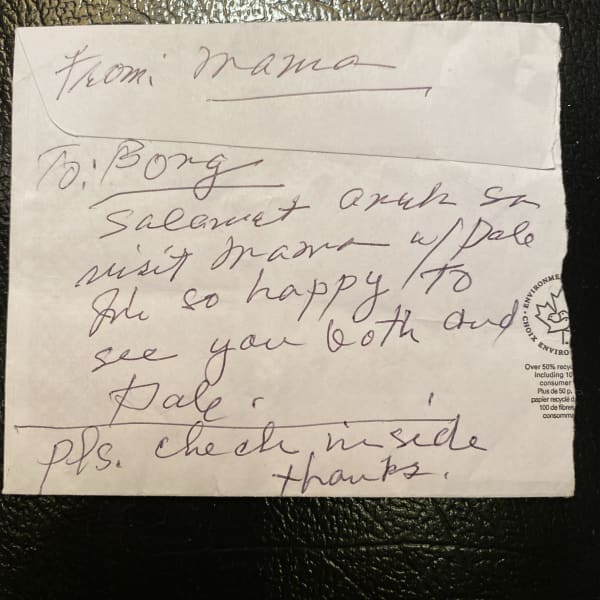 From: Mama
To: Bong
Salamat anak sa
visit Mama w/ Dale
I'm so happy to
see you both and
Dale.
Pls. check inside
thanks.
ENVIRONME
CHOIX ENVIRO
Over 50% recyc
Including 10
consumer
Plus de 50 p.
papier recyclé d
100 de fibres
consomma